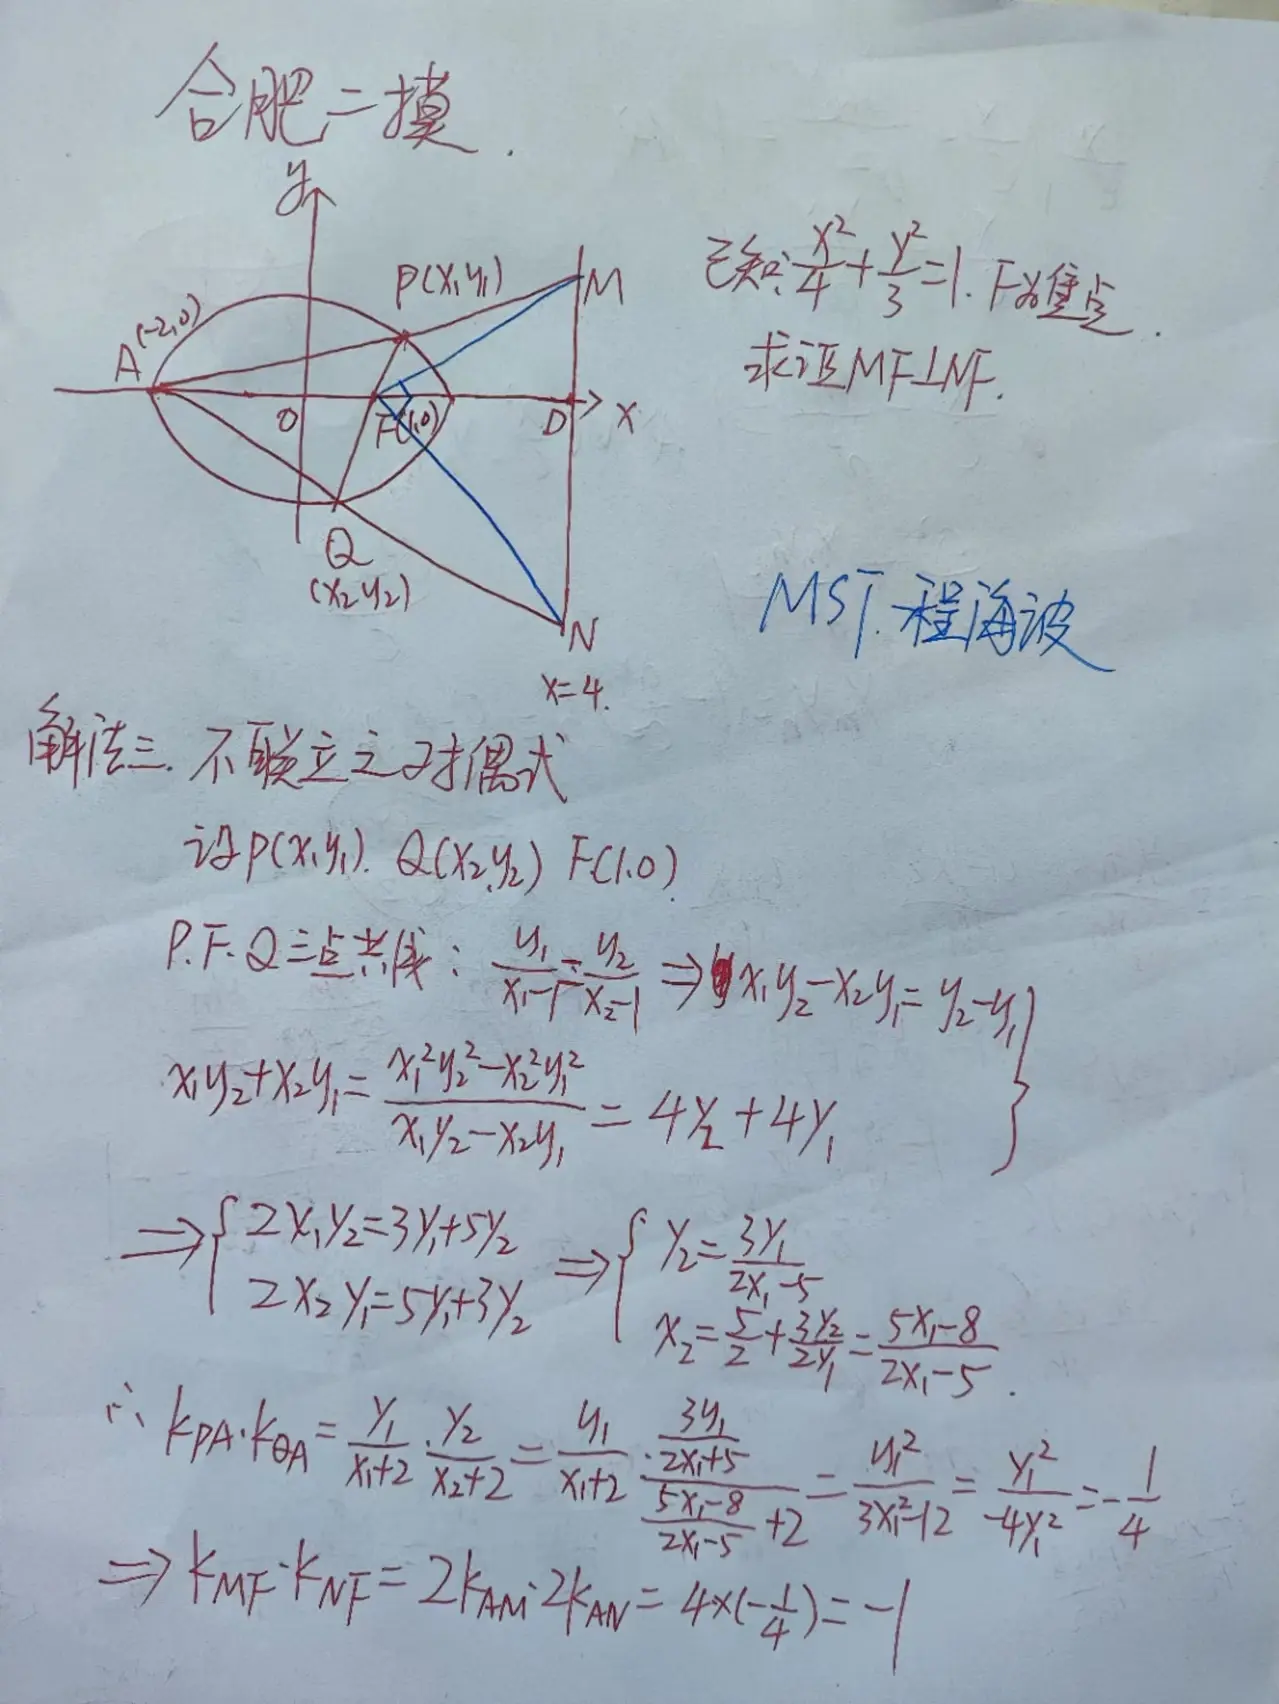 合肥二摸.
y
P(x₁y₁)
M
A(-2,0)
O
F(1,0)
D
x
Q
(x₂y₂)
N
x=4.
已知:x²/4+y²/3=1. F为焦点.
求证MF⊥NF.
MST.程海波
解法三.不联立之对偶式
设P(x₁y₁). Q(x₂,y₂) F(1.0)
P.F.Q三点共线: y₁/(x₁-1)=y₂/(x₂-1) ⇒ x₁y₂-x₂y₁=y₂-y₁
x₁y₂+x₂y₁=(x₁²y₂²-x₂²y₁²)/(x₁y₂-x₂y₁)=4y₂+4y₁ }
⇒{2x₁y₂=3y₁+5y₂ ⇒{y₂=3y₁/(2x₁-5)
2x₂y₁=5y₁+3y₂ x₂=5/2+3y₂/2y₁=(5x₁-8)/(2x₁-5).
∴ kPA·kQA=y₁/(x₁+2)·y₂/(x₂+2)=y₁/(x₁+2)·(3y₁/(2x₁+5))/((5x₁-8)/(2x₁-5)+2)=y₁²/(3x₁²-12)=y₁²/(-4y₁²)=-1/4
⇒kMF·kNF=2kAM·2kAN=4×(-1/4)=-1